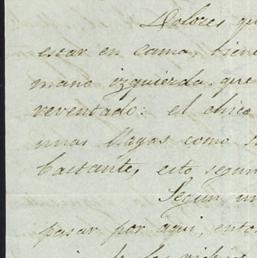 Dolores qu
estar en cama, tiene
mano izquierda, que
reventado: el chico
unas llagas como
bastante, esto segun
Segun un
pasar por aqui, ento